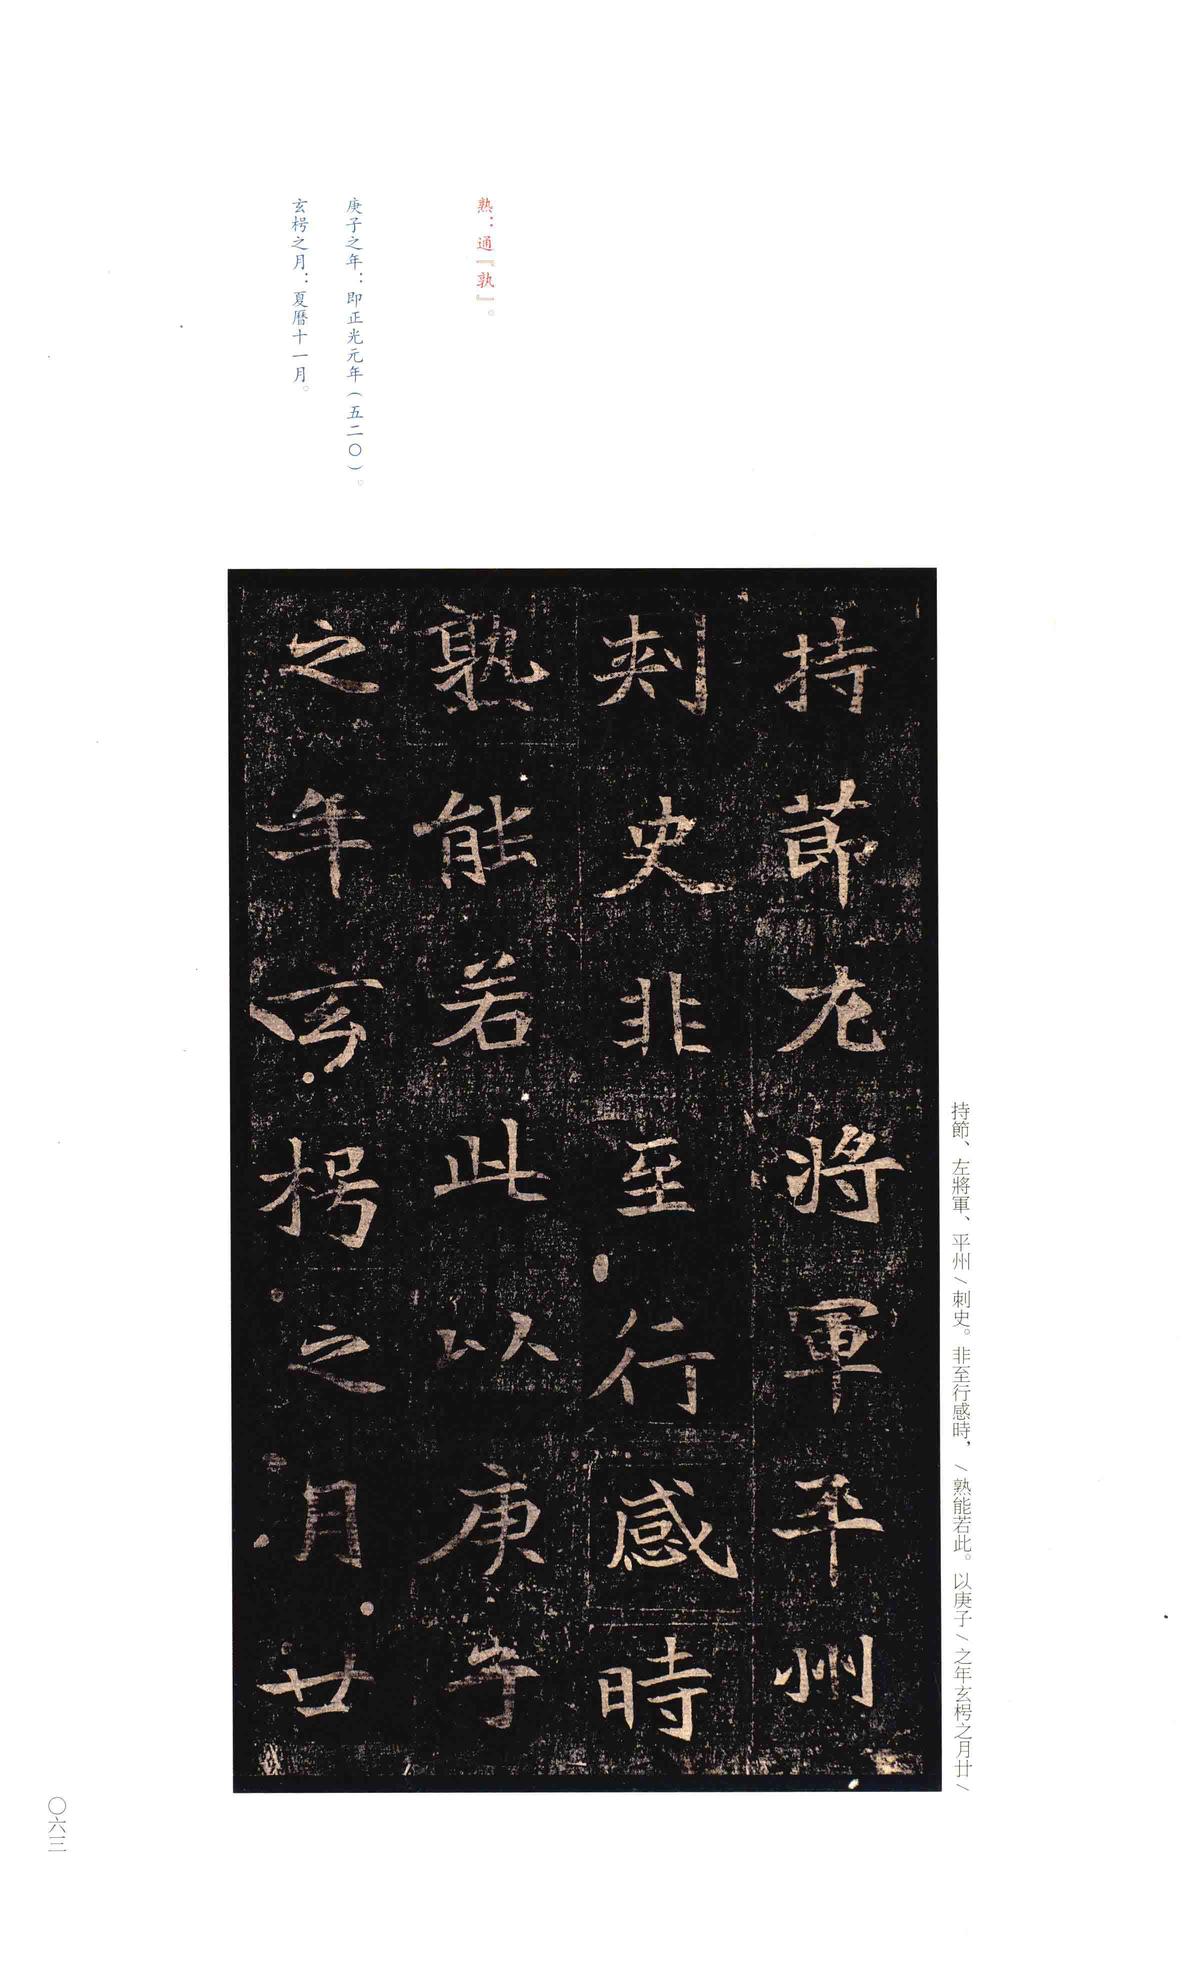 熟：通『孰』。
庚子之年：即正光元年（五二〇）。
玄枵之月：夏曆十一月。
持節左將軍平州
刺史非至行感時
熟能若此以庚子
之年玄枵之月廿
持節、左將軍、平州／刺史。非至行感時，／熟能若此。以庚子／之年玄枵之月廿／
〇六三